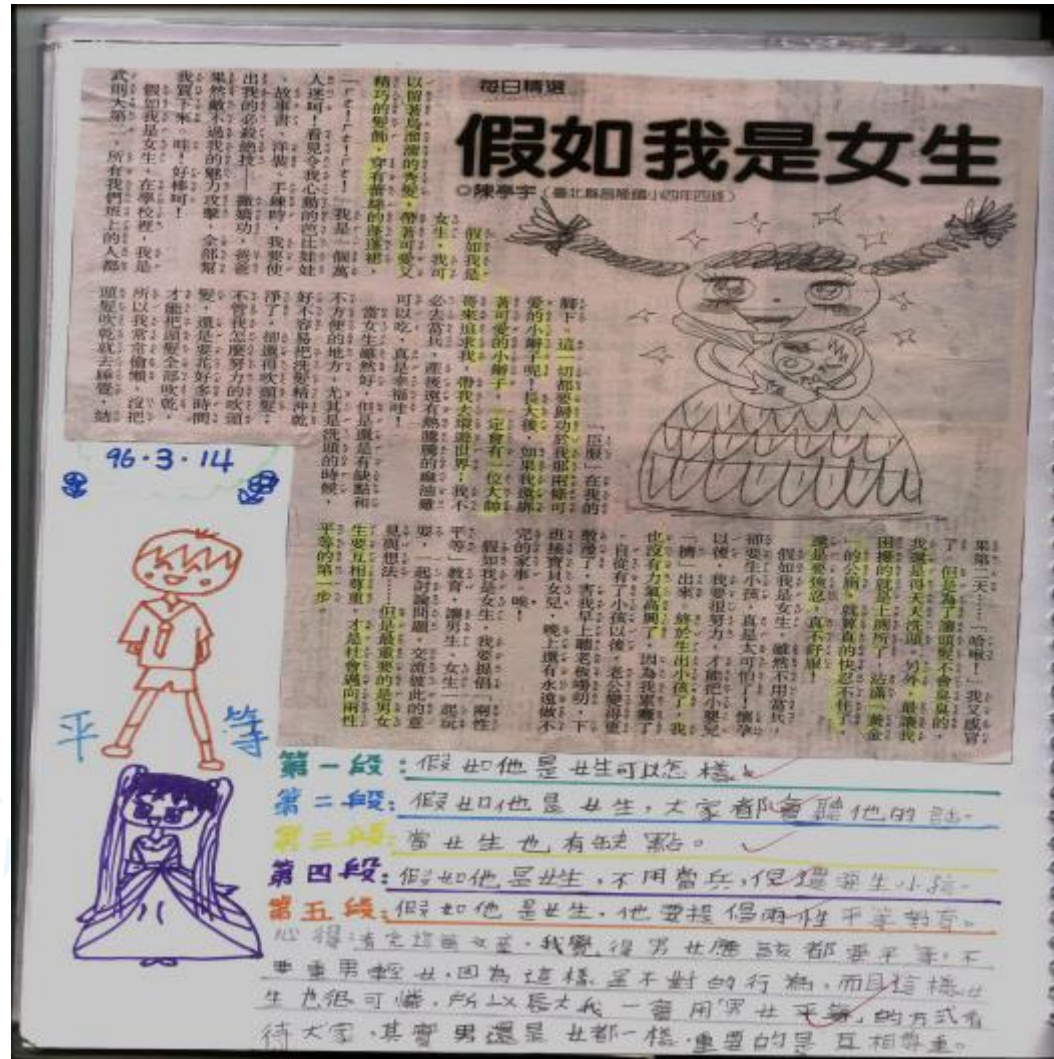 每日精選
假如我是女生
◎陳亭宇（臺北縣昌隆國小四年四班）
假如我是
女生，我可
以留著烏溜溜的秀髮，帶著可愛又
精巧的髮飾，穿有蕾絲的蓬蓬裙，
「ㄅㄧㄤˋ！ㄅㄧㄤˋ！」我是一個萬
人迷呵！看見令我心動的芭比娃娃
、故事書、洋裝、手鍊時，我要使
出我的必殺絕技——撒嬌功，爸爸
果然敵不過我的魅力攻擊，全部幫
我買下來。哇！好棒呵！
假如我是女生，在學校裡，我是
武則天第二，所有我們班上的人都
「臣服」在我的
腳下。這一切都要歸功於我那兩條可
愛的小辮子呢！長大後，如果我還綁
著可愛的小辮子，一定會有一位大帥
哥來追求我，帶我去環遊世界；我不
必去當兵，產後還有熱騰騰的麻油雞
可以吃，真是幸福哇！
當女生雖然好，但是還是有缺點和
不方便的地方，尤其是洗頭的時候，
好不容易把洗髮精沖乾
淨了，卻還得吹頭髮；
不管我怎麼努力的吹頭
髮，還是要花好多時間
才能把頭髮全部吹乾，
所以我常常偷懶，沒把
頭髮吹乾就去睡覺，結
果第二天……「哈啾！」我又感冒
了。但是為了讓頭髮不會臭臭的，
我還是得天天洗頭。另外，最讓我
困擾的就是上廁所了，站滿「黃金
」的公廁，就算真的快忍不住了，
還是要強忍，真不舒服！
假如我是女生，雖然不用當兵，
卻要生小孩，真是太可怕了！懷孕
以後，我要很努力，才能把小嬰兒
「擠」出來。終於生出小孩了，我
也沒有力氣高興了，因為我累癱了
。自從有了小孩以後，老公變得更
散漫了，害我早上聽老板嘮叨，下
班接寶貝女兒，晚上還有永遠做不
完的家事。唉！
假如我是女生，我要提倡「兩性
平等」教育，讓男生、女生一起玩
耍，一起討論問題，交流彼此的意
見與想法……但是最重要的是男女
生要互相尊重，才是社會邁向兩性
平等的第一步。
96.3.14
平等
第一段：假如他是女生可以怎樣。
第二段：假如他是女生，大家都會聽他的話。
第三段：當女生也有缺點。
第四段：假如他是女生，不用當兵，但還要生小孩。
第五段：假如他是女生，他要提倡兩性平等教育。
心得：看完這篇文章，我覺得男女應該都要平等，不
要重男輕女，因為這樣是不對的行為，而且這樣女
生也很可憐，所以長大我一定會用「男女平等」的方式看
待大家，其實男還是女都一樣，重要的是互相尊重。